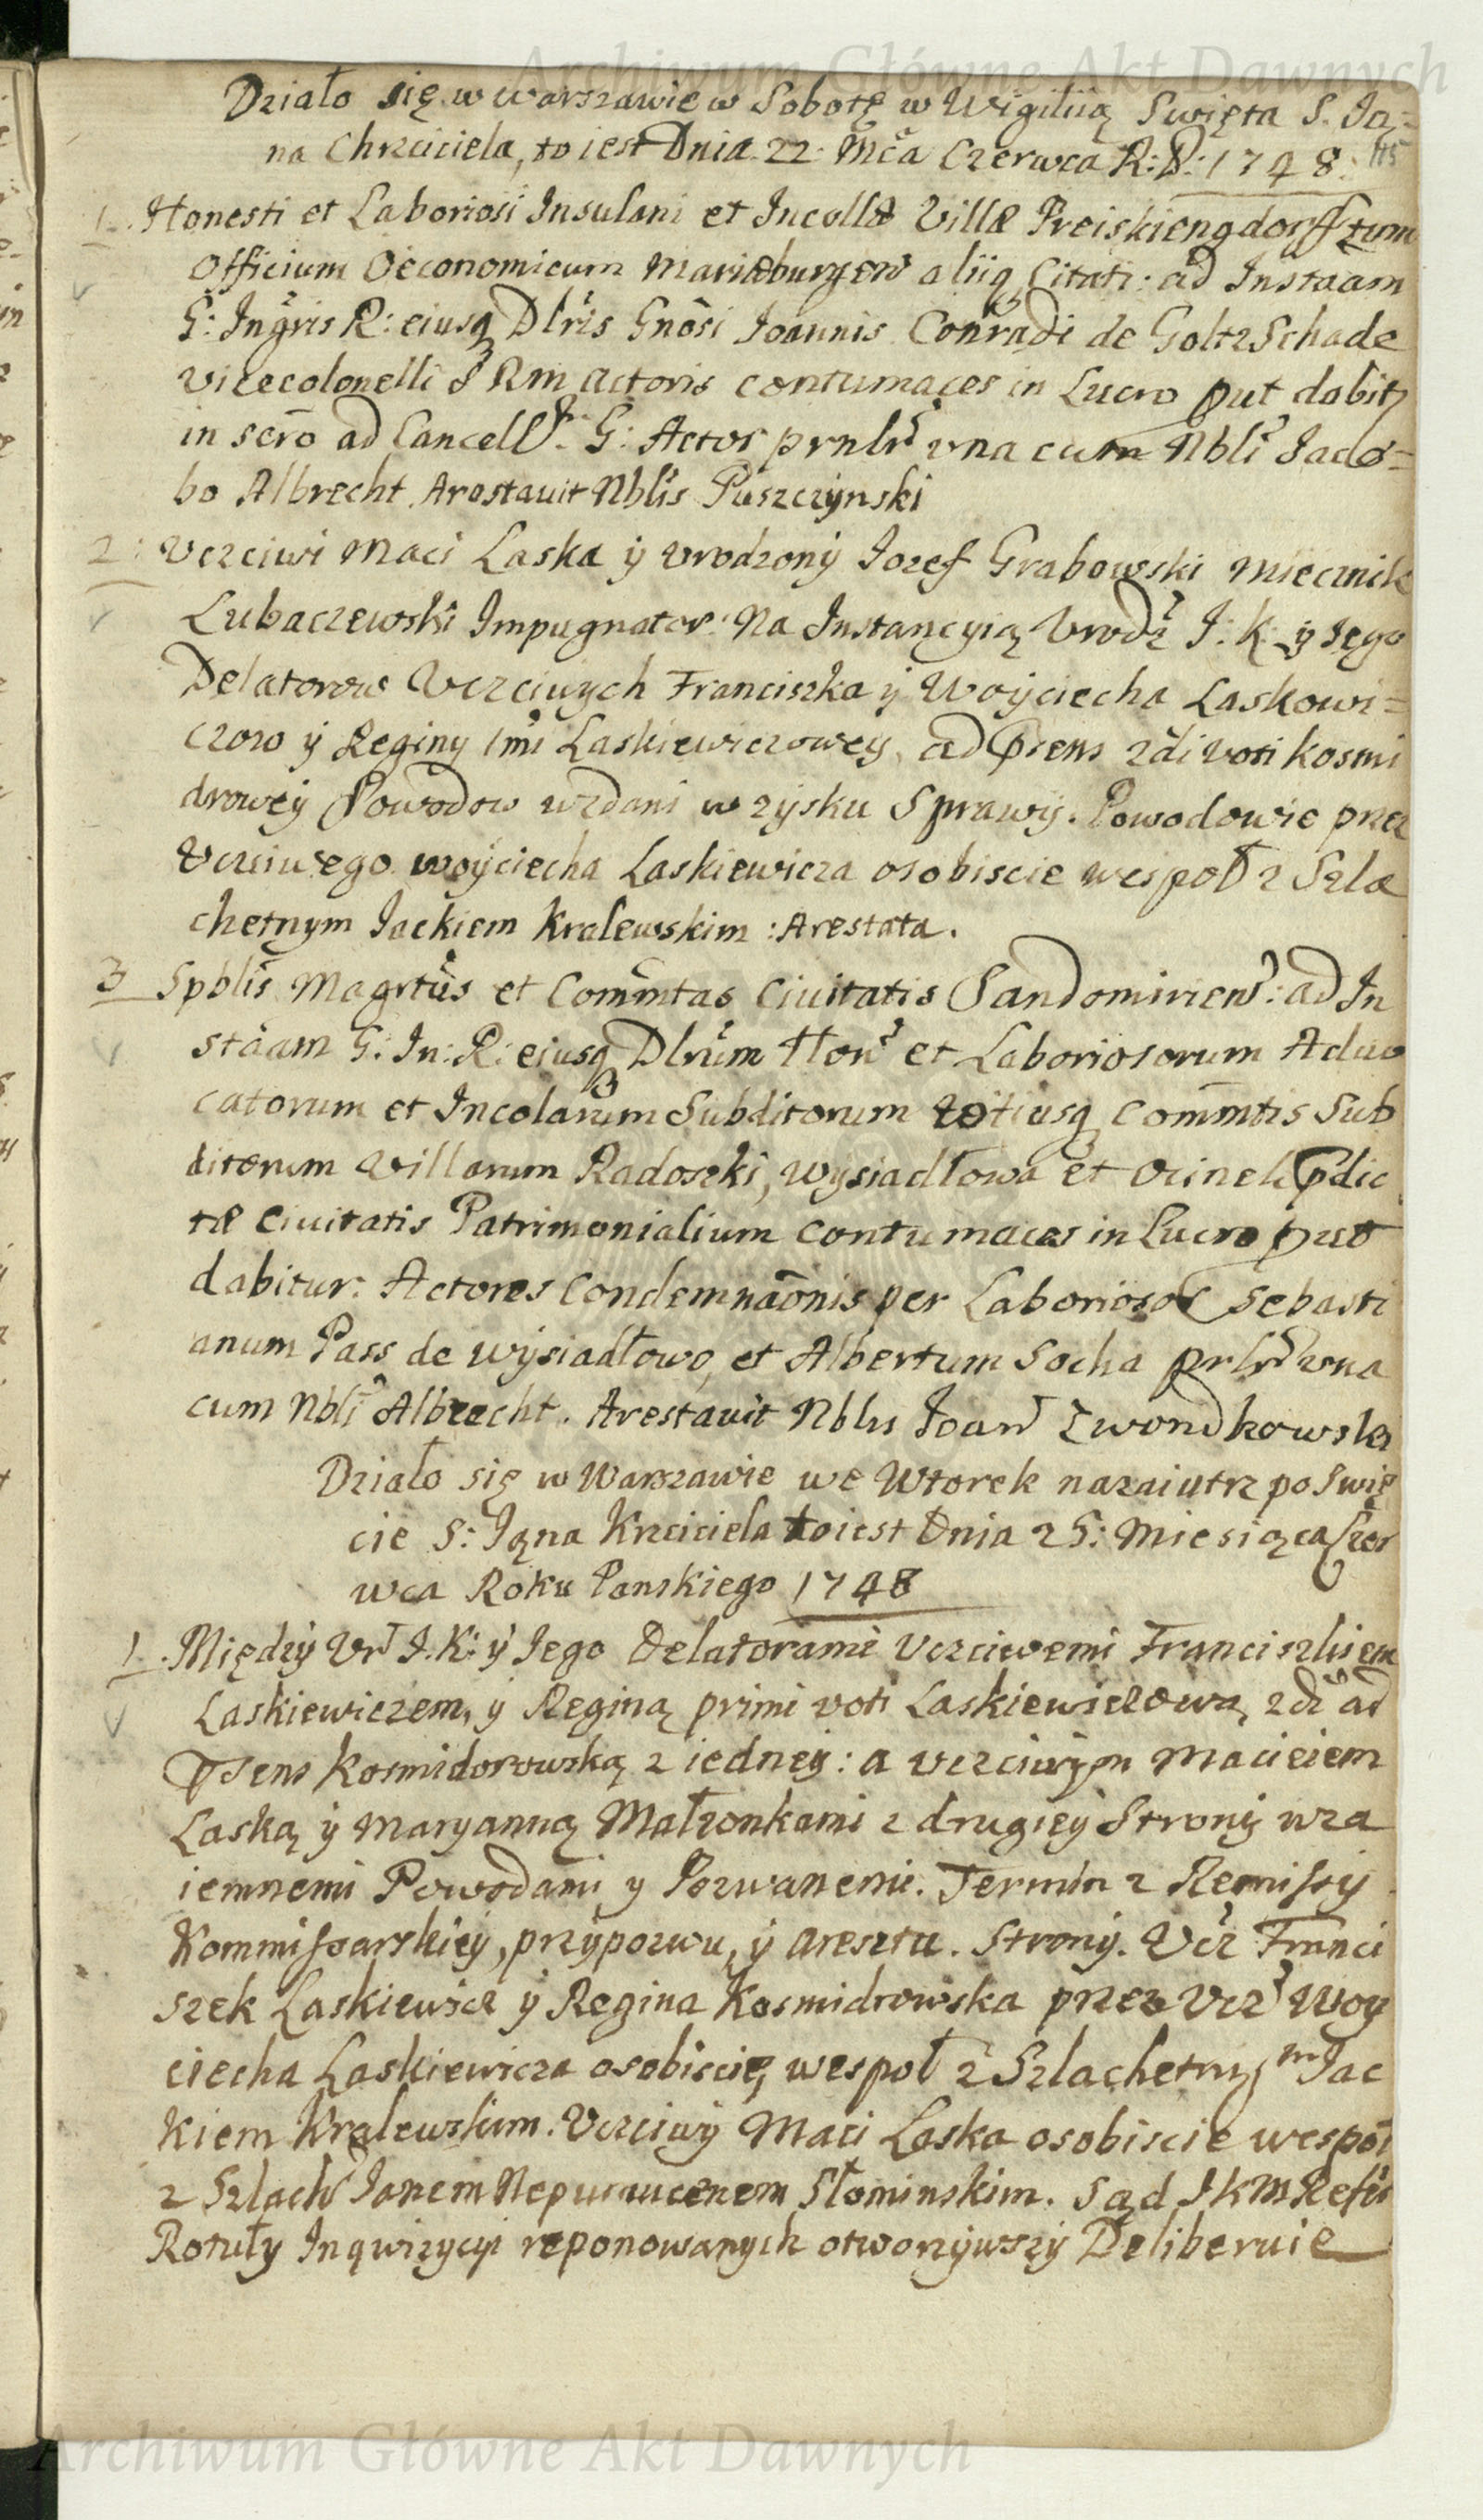 Archiwum Główne Akt Dawnych
Działo się w Warszawie w Sobotę w Wigiliią Swięta S. Ja=
na Chrzciciela, to iest Dnia 22. Mca Czerwca R: P: 1748. 115
1. Honesti et Laboriosi Insulani et Incollæ Villæ Preiskiengdorff tum
Officium Oeconomicum Mariæburgen aliiq Citati: ad Instaam
G: Ingris R: eiusq Dlris Gnosi Joannis Conradi de Goltz Schade
Vicecolonelli S R M Actoris contumaces in Lucro put dabit
in scro ad Cancell. G: Actor prnlr vna cum Nbli Jaco=
bo Albrecht. Arestauit Nblis Puszczynski
2: Vczciwi Maci Laska ÿ Vrodzonÿ Jozef Grabowski Miecznik
Lubaczewski Impugnator: Na Instancyią Vrodz J: K: ÿ Jego
Delatorow Vczciwych Franciszka ÿ Woÿciecha Laskowi=
czow ÿ Reginy Imi Laskiewiczoweÿ, ad psens 2di voti Kosmi
droweÿ Powodow wzdani w zÿsku Sprawÿ. Powodowie prze
Vczciwego Woÿciecha Laskiewicza osobiscie wespoł z Szla
chetnym Jackiem Kralewskim: Arestata.
3 Spblis Magrtus et Commtas Ciuitatis Sandomirien: ad In
staam G: In: R: eiusq Dlrum Hon et Laboriosorum Aduo
catorum et Incolarum Subditorum totiusq Commtis Sub
ditorum Villarum Radoszki, Wÿsiadłowa et Ocinek pdic
tæ Ciuitatis Patrimonialium contumaces in Lucro put
dabitur: Actores Condemnaonis per Laboriosos Sebasti
anum Pass de Wÿsiadłowo, et Albertum Socha prlr vna
cum Nbli Albrecht. Arestauit Nblis Joan Zwondkowski
Działo się w Warszawie we Wtorek nazaiutrz po Swię
cie S: Jąna Krzciciela to iest Dnia 25: Miesiąca Czer
wca Roku Panskiego 1748
1. Międzÿ Vr J. K: ÿ Jego Delatorami Vczciwemi Franciszkiem
Laskiewiczem, ÿ Reginą primi voti Laskiewiczową, 2di ad
psens Kosmidorowską z iedneÿ: a Vczciwÿm Macieiem
Laską ÿ Maryanną Małzonkami z drugieÿ Stronÿ wza
iemnemi Powodami y Pozwanemi. Termin z Remissÿ
Kommissarskieÿ, przÿpozwu, ÿ Aresztu. Stronÿ. Vcz Franci
szek Laskiewicz ÿ Regina Kosmidrowska przez Vcz Woy
ciecha Laskiewicza osobiscie, wespoł z Szlachetnym Jac
kiem Kralewskim. Vczciwÿ Maci Laska osobiscie wespoł
z Szlach Janem Nepumucenem Słominskim. Sąd JKM Refer
Rotuły Inqwizycyi reponowanych otworzÿwszÿ Deliberuie
Archiwum Główne Akt Dawnych